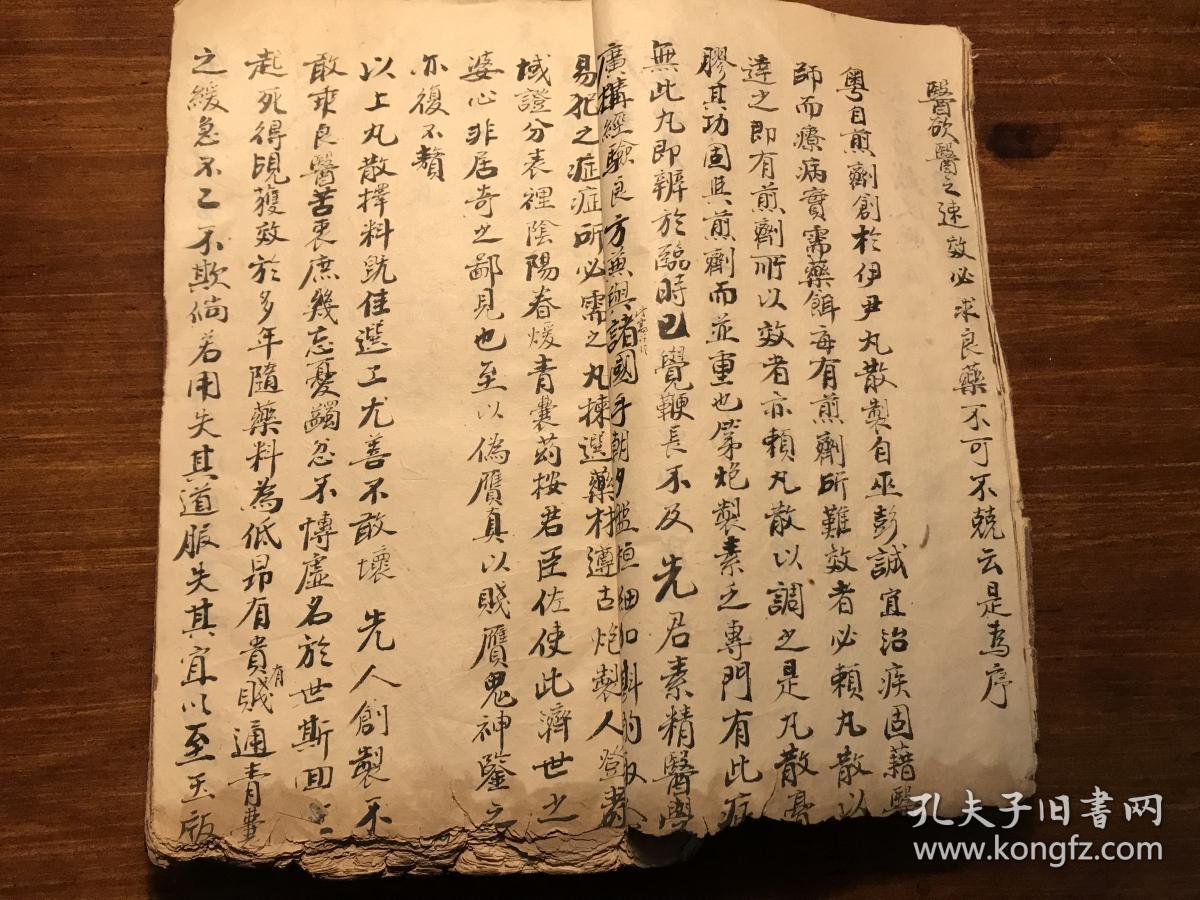 醫欲醫之速效必求良藥不可不兢云是為序
粵自煎劑創於伊尹丸散製自巫彭誠宜治疾固藉醫
師而療病實需藥餌每有煎劑所難效者必賴丸散以
達之即有煎劑所以效者亦賴丸散以調之是丸散膏
膠其功固與煎劑而並重也第炮製素乏專門有此症
無此丸即辨於臨時已覺鞭長不及 先君素精醫學
廣搆經驗良方兼與諸國手朝夕細加斟酌
易犯之症症所必需之丸揀選藥材遵古炮製人登壽
域證分表裡陰陽春煖青囊葯按君臣佐使此濟世之
婆心非居奇之鄙見也至以偽贋真以賤贋鬼神鑒之
亦復不贅
以上丸散擇料既佳選工尤善不敢壞 先人創製不
敢求良醫苦衷庶幾忘憂蠲忿不愽虛名於世斯回
起死得睍獲效於多年隨藥料為低昂有貴有賤通青囊
之緩急不二不欺倘若用失其道服失其宜以至玉版
孔夫子旧書网
www.kongfz.com